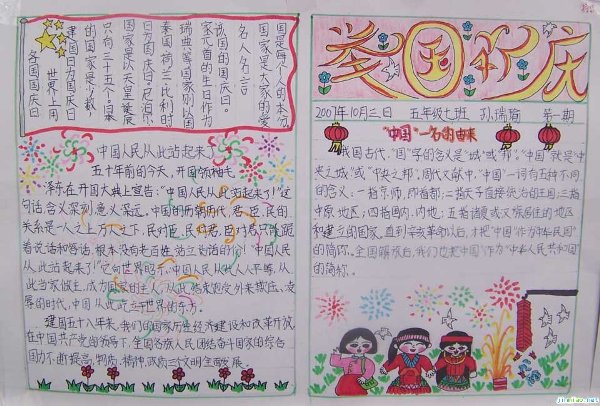 举国欢庆
2007年10月三日 五年级七班 孙瑞瑜 第一期
"中国"一名的由来
我国古代，"国"字的含义是"城"或"邦"。"中国"就是"中
央之城"或"中央之邦"；周代文献中，"中国"一词有五种不同
的含义：一指京师，即首都；二指天子直接统治的王国；三指
中原地区；四指国内、内地；五指诸夏或汉族居住的地区
和建立的国家。直到辛亥革命以后，才把"中国"作为"中华民国"
的简称。全国解放后，我们也把"中国"作为"中华人民共和国"
的简称。
各国国庆日
世界上用
建国日为国庆日
的国家是少数，
只有三十五个。日本
国家是以天皇诞辰
日为国庆日。尼泊尔、
泰国、荷兰、比利时
瑞典等国家则以国
家元首的生日作为
该国的国庆日。
名人名言
国家是大家的，爱
国是每个人的本分。
中国人民从此站起来了
五十年前的今天，开国领袖毛
泽东在开国大典上宣告："中国人民从此站起来了！"这
句话含义深刻，意义深远。中国的历朝历代，君、臣、民的
关系是一人之上万人之下，民对臣，民对君，臣对君只能跪
着说话和答话，根本没有老百姓站立说话的份！"中国人民
从此站起来了！"它向世界昭示，中国人民从此人人平等，从
此当家做主，成为国家的主人，从此结束饱受外来掠夺、凌
辱的时代，中国从此屹立于世界的东方。
建国五十八年来，我们的国家历经经济建设和改革开放，
在中国共产党的领导下，全国各族人民团结奋斗，国家的综合
国力不断提高，物质、精神、政质三个文明全面发展。